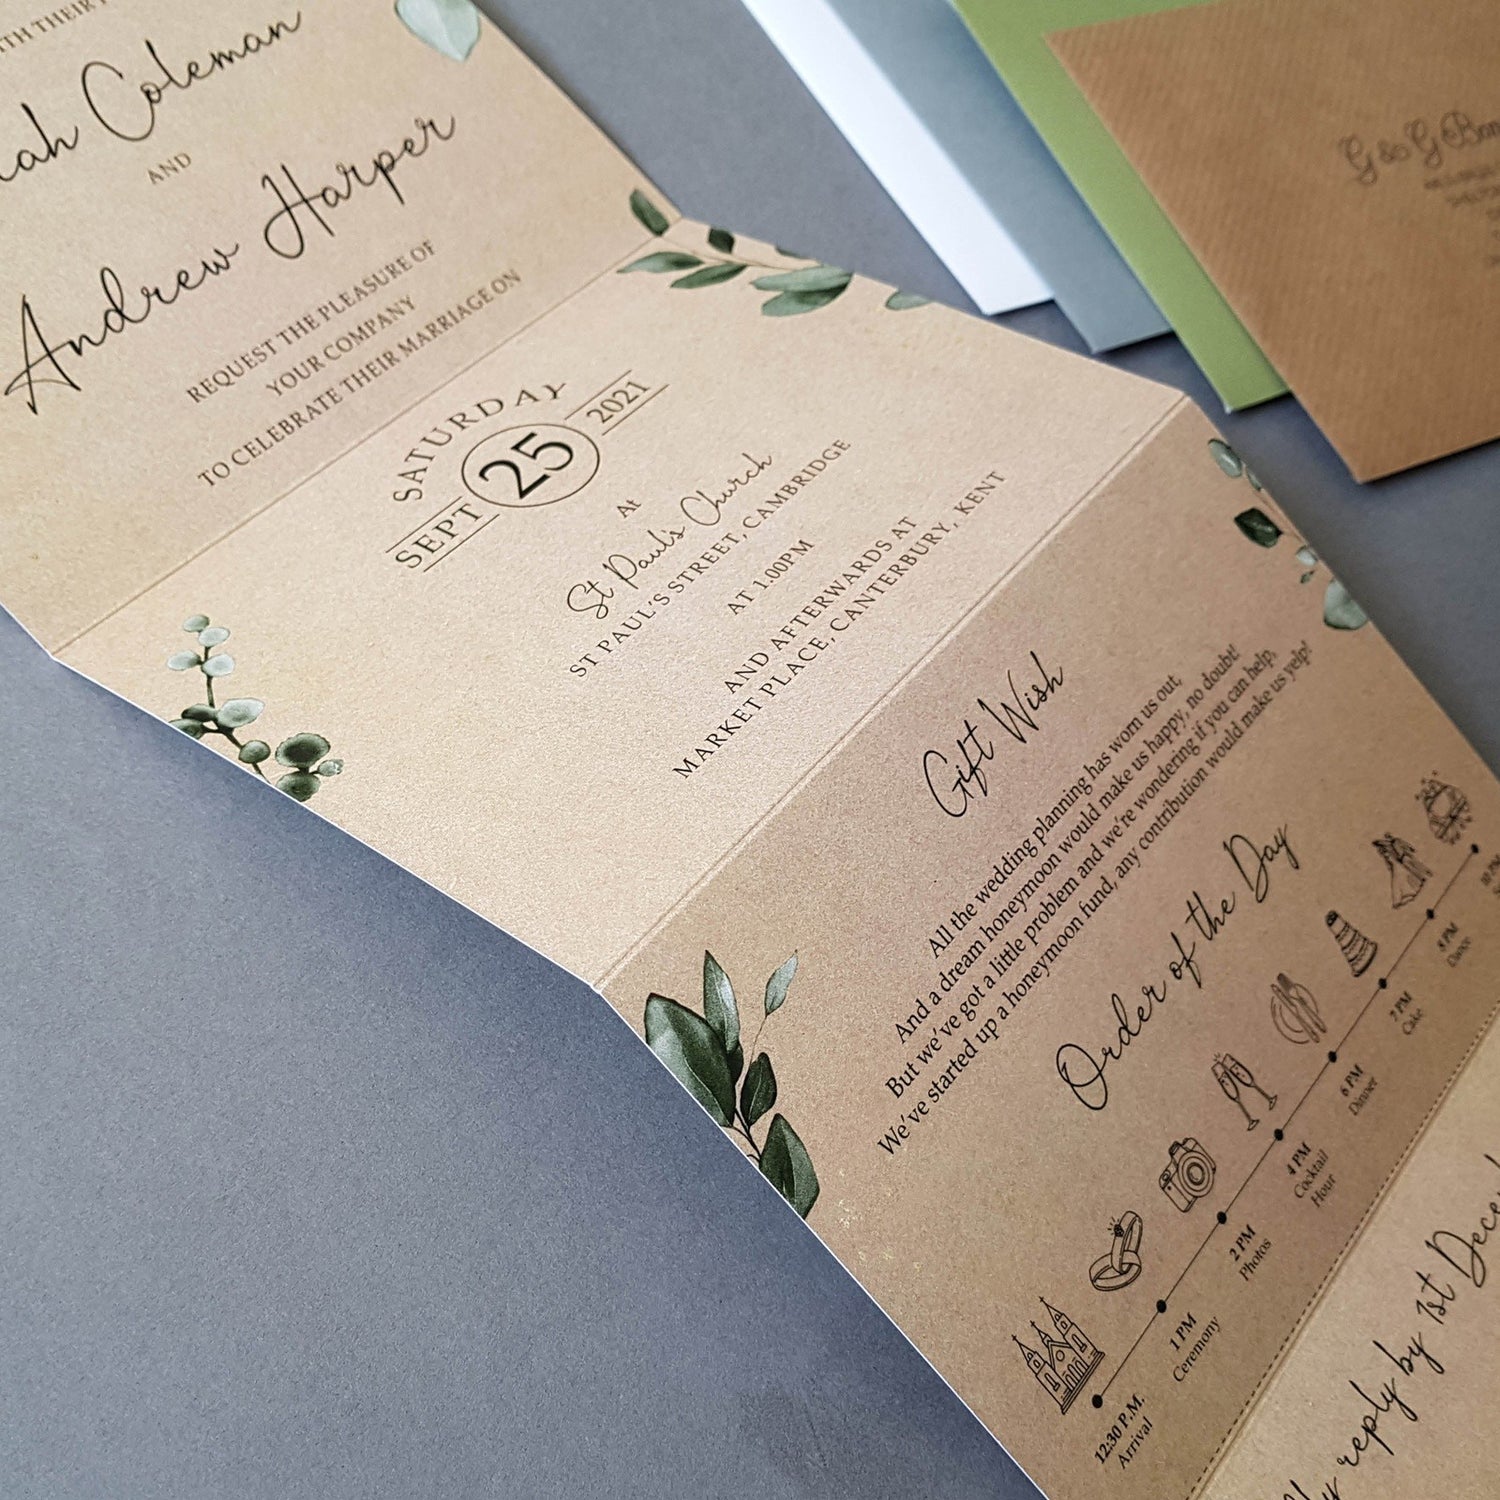 WITH THEIR
Coleman
AND
Andrew Harper
REQUEST THE PLEASURE OF
YOUR COMPANY
TO CELEBRATE THEIR MARRIAGE ON
SATURDAY
SEPT 25 2021
At
St Paul's Church
ST PAUL'S STREET, CAMBRIDGE
AT 1.00PM
AND AFTERWARDS AT
MARKET PLACE, CANTERBURY, KENT
Gift Wish
All the wedding planning has worn us out,
And a dream honeymoon would make us happy, no doubt!
But we've got a little problem and we're wondering if you can help,
We've started up a honeymoon fund, any contribution would make us yelp!
Order of the Day
12:30 P.M.
Arrival
1 PM
Ceremony
2 PM
Photos
4 PM
Cocktail
Hour
6 PM
Dinner
7 PM
Cake
8 PM
Dance
10 PM
reply by 1st Dece
G & G Ban